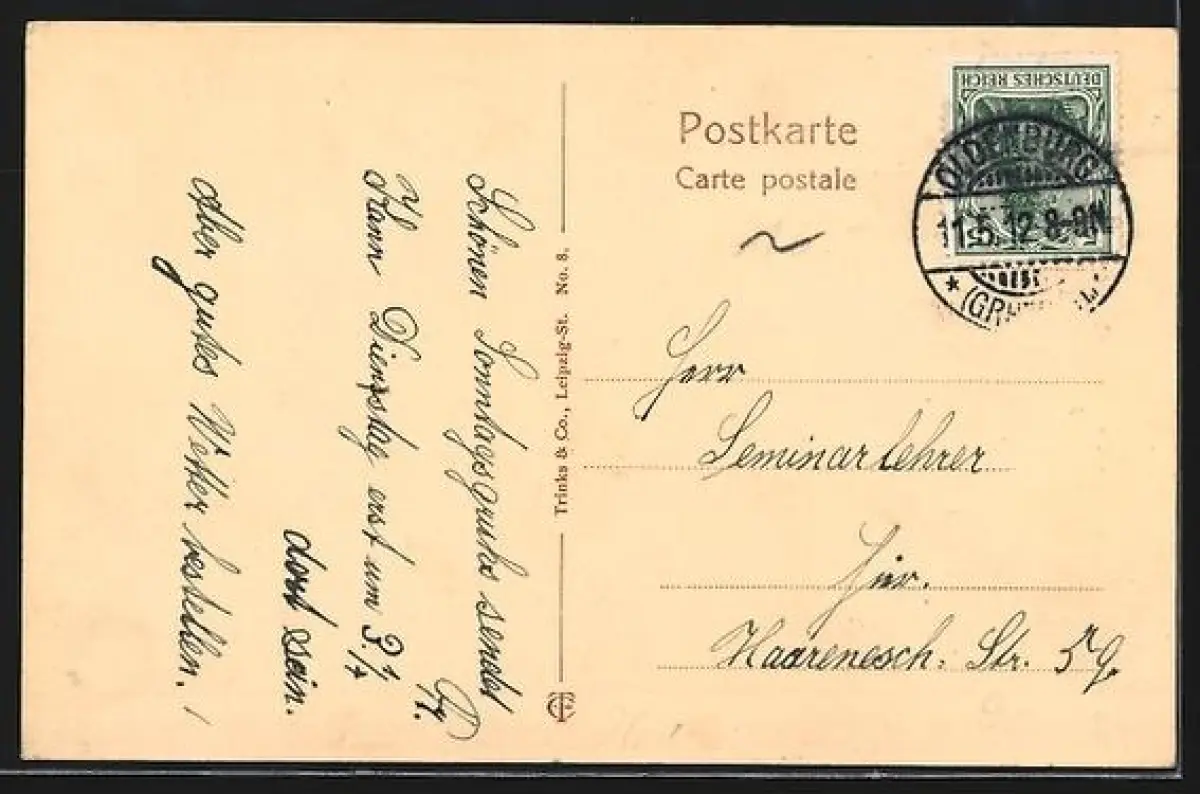 Postkarte
Carte postale
DEUTSCHES REICH
OLDENBURG
11.5.12 8-9N.
* (GR
Herr
Seminarlehrer
Hier.
Haarenesch. Str. 59
Trinks & Co., Leipzig-St. No. 8.
Schönen Sonntagsgruß sendet
Kann Dienstag erst um
dort sein.
Aber gutes Wetter bestellen.!